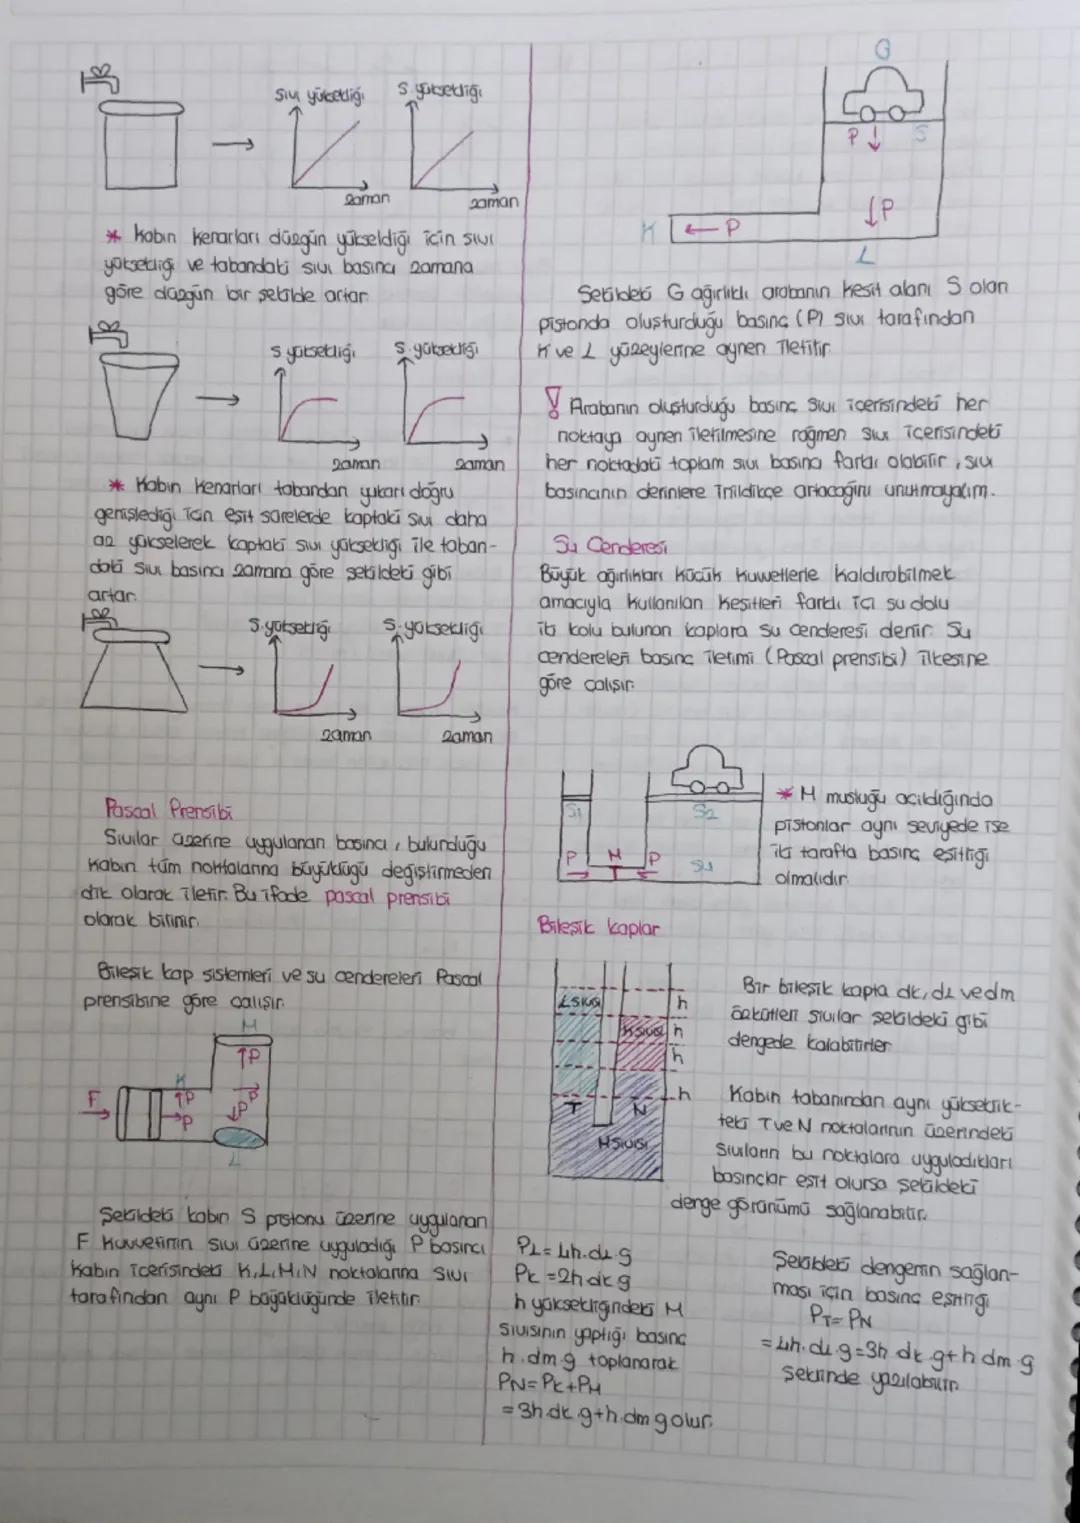 Sıvı yüksekliği
S. yüksekliği
zaman
zaman
* Kabın kenarları düzgün yükseldiği için sıvı
yüksekliği ve tabandaki sıvı basıncı zamana
göre düzgün bir şekilde artar.
S yüksekliği
S. yüksekliği
zaman
zaman
* Kabın kenarları tabandan yukarı doğru
genişlediği için eşit sürelerde kaptaki sıvı daha
az yükselerek kaptaki sıvı yüksekliği ile taban-
daki sıvı basıncı zamana göre şekildeki gibi
artar.
S. yüksekliği
S. yüksekliği
zaman
zaman
Pascal Prensibi
Sıvılar üzerine uygulanan basıncı, bulunduğu
kabın tüm noktalarına büyüklüğü değiştirmeden
dik olarak iletir. Bu ifade pascal prensibi
olarak bilinir.
Bileşik kap sistemleri ve su cendereleri Pascal
prensibine göre çalışır.
M
↑P
K
F
↑P
→P
P
↓P
L
Şekildeki kabın S pistonu üzerine uygulanan
F kuvvetinin sıvı üzerine uyguladığı P basıncı
kabın içerisindeki K, L, M, N noktalarına sıvı
tarafından aynı P büyüklüğünde iletilir.
G
P ↓ S
↓P
K ←P
L
Şekildeki G ağırlıklı arabanın kesit alanı S olan
pistonda oluşturduğu basınç (P) sıvı tarafından
K ve L yüzeylerine aynen iletilir.
! Arabanın oluşturduğu basınç sıvı içerisindeki her
noktaya aynen iletilmesine rağmen sıvı içerisindeki
her noktadaki toplam sıvı basıncı farklı olabilir, sıvı
basıncının derinlere inildikçe artacağını unutmayalım.
Su Cenderesi
Büyük ağırlıkları küçük kuvvetlerle kaldırabilmek
amacıyla kullanılan kesitleri farklı içi su dolu
iki kolu bulunan kaplara su cenderesi denir. Su
cendereleri basınç iletimi (Pascal prensibi) ilkesine
göre çalışır.
S1
S2
P M P
SU
* M musluğu açıldığında
pistonlar aynı seviyede ise
iki tarafta basınç eşitliği
olmalıdır.
Bileşik kaplar
L sıvısı
h
K sıvısı h
h
h
T N
M sıvısı
Bir bileşik kapta dk, dL ve dm
özkütleli sıvılar şekildeki gibi
dengede kalabilirler.
Kabın tabanından aynı yükseklik-
teki T ve N noktalarının üzerindeki
sıvıların bu noktalara uyguladıkları
basınçlar eşit olursa şekildeki
denge görünümü sağlanabilir.
PL = 4h.dL.g
PK = 2h.dk.g
h yüksekliğindeki M
sıvısının yaptığı basınç
h.dm.g toplanarak
PN = PK + PM
= 3h.dk.g+h.dm g olur.
Şekildeki dengenin sağlan-
ması için basınç eşitliği
PT = PN
= 4h.dL.g = 3h dk.g+h dm.g
şeklinde yazılabilir.